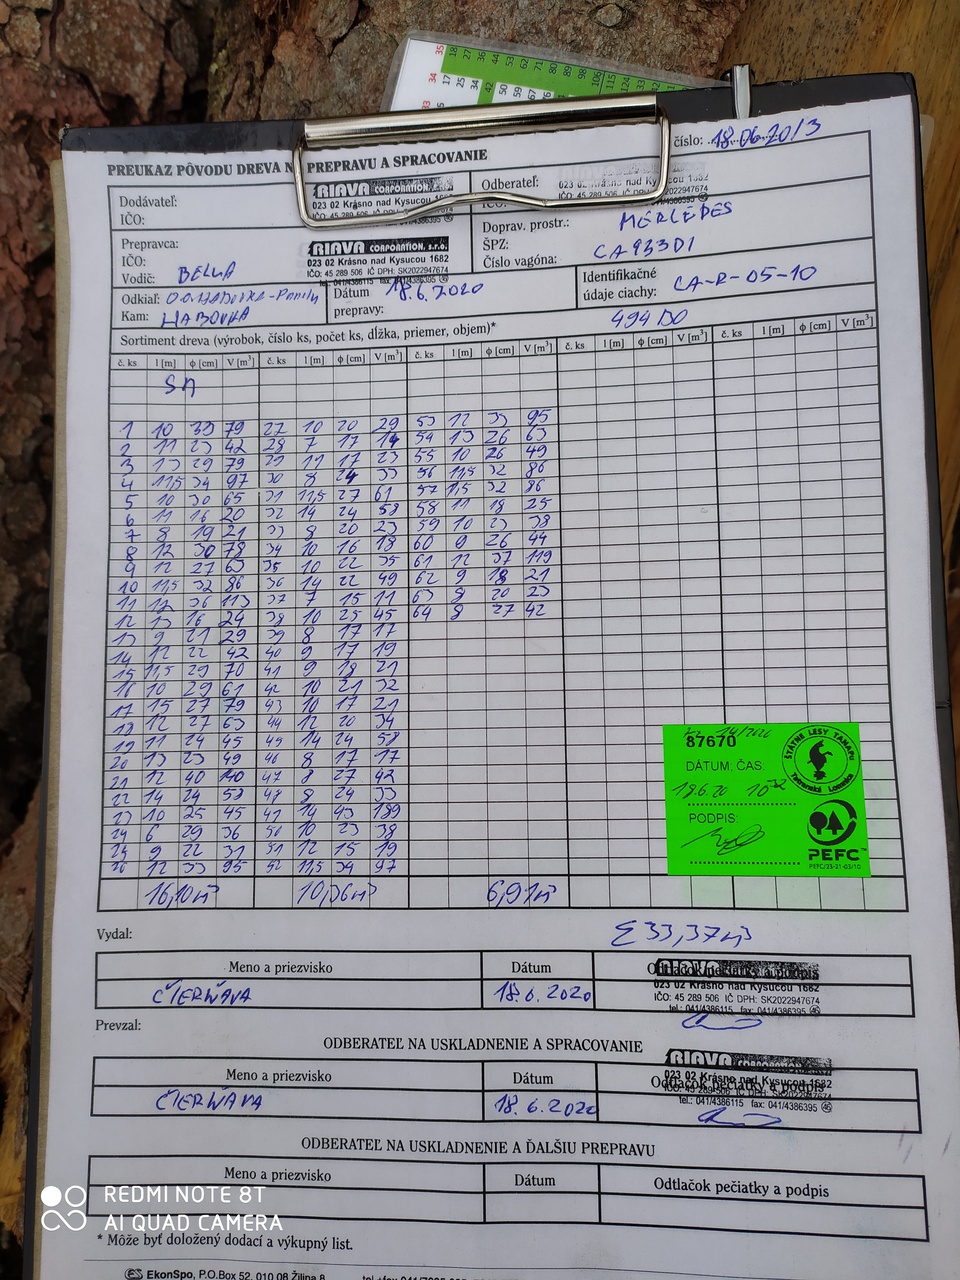 číslo: 18.06.20/3
PREUKAZ PÔVODU DREVA N PREPRAVU A SPRACOVANIE
Dodávateľ:
IČO:
RIAVA CORPORATION, s.r.o.
023 02 Krásno nad Kysucou 1682
IČO: 45 289 506 IČ DPH: SK2022947674
Odberateľ:
023 02 Krásno nad Kysucou 1682
IČO: 45 289 506 IČ DPH: SK2022947674
Prepravca:
IČO:
Vodič: BELKA
RIAVA CORPORATION, s.r.o.
023 02 Krásno nad Kysucou 1682
IČO: 45 289 506 IČ DPH: SK2022947674
tel.: 041/4386115 fax: 041/4386395
Doprav. prostr.: MERCEDES
ŠPZ: CA933DI
Číslo vagóna:
Odkiaľ: O.O.HABOVKA-
Kam: HABOVKA
Dátum prepravy: 18.6.2020
Identifikačné údaje ciachy: CA-R-05-10
Sortiment dreva (výrobok, číslo ks, počet ks, dĺžka, priemer, objem)*
494DO
č. ks l [m] ϕ [cm] V [m³] č. ks l [m] ϕ [cm] V [m³] č. ks l [m] ϕ [cm] V [m³] č. ks l [m] ϕ [cm] V [m³] č. ks l [m] ϕ [cm] V [m³]
SM
1 10 33 79 27 10 20 29 53 12 33 95
2 11 23 42 28 7 17 14 54 13 26 63
3 13 29 79 29 11 17 23 55 10 26 49
4 11,5 34 97 30 8 24 33 56 11,5 32 86
5 10 30 65 31 11,5 27 61 57 11,5 32 86
6 11 16 20 32 14 24 58 58 11 18 25
7 8 19 21 33 8 20 23 59 10 23 38
8 12 30 78 34 10 16 18 60 9 26 44
9 12 27 63 35 10 22 35 61 12 37 119
10 11,5 32 86 36 14 22 49 62 9 18 21
11 12 36 113 37 7 15 11 63 8 20 23
12 13 16 24 38 10 25 45 64 8 27 42
13 9 21 29 39 8 17 17
14 12 22 42 40 9 17 19
15 11,5 29 70 41 9 18 21
16 10 29 61 42 10 21 32
17 15 27 79 43 10 17 21
18 12 27 63 44 12 20 34
19 11 24 45 45 14 24 58
20 13 23 49 46 8 17 17
21 12 40 140 47 8 27 42
22 14 24 58 48 8 24 33
23 10 25 45 49 14 43 189
24 6 29 36 50 10 23 38
25 9 22 31 51 12 15 19
26 12 33 95 52 11,5 34 97
16,10m³ 10,36m³ 6,91m³
Σ 33,37m³
14/2020
87670
DÁTUM, ČAS:
18.6.20 10
PODPIS:
ŠTÁTNE LESY TANAPu
Tatranská Lomnica
PEFC™
PEFC/23-21-03/10
Vydal:
Meno a priezvisko Dátum Odtlačok pečiatky a podpis
ČIERŇAVA 18.6.2020
RIAVA CORPORATION, s.r.o.
023 02 Krásno nad Kysucou 1682
IČO: 45 289 506 IČ DPH: SK2022947674
tel.: 041/4386115 fax: 041/4386395
Prevzal:
ODBERATEĽ NA USKLADNENIE A SPRACOVANIE
Meno a priezvisko Dátum Odtlačok pečiatky a podpis
ČIERŇAVA 18.6.2020
RIAVA CORPORATION, s.r.o.
023 02 Krásno nad Kysucou 1682
tel.: 041/4386115 fax: 041/4386395
ODBERATEĽ NA USKLADNENIE A ĎALŠIU PREPRAVU
Meno a priezvisko Dátum Odtlačok pečiatky a podpis
* Môže byť doložený dodací a výkupný list.
EkonSpo, P.O.Box 52, 010 08 Žilina 8
REDMI NOTE 8T
AI QUAD CAMERA